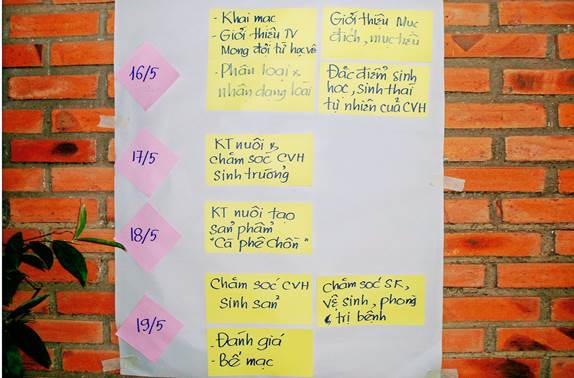 16/5
- Khai mạc
- Giới thiệu TV
Mong đợi từ học viên
- Phân loại &
nhận dạng loài
Giới thiệu Mục
đích, mục tiêu
Đặc điểm sinh
học, sinh thái
tự nhiên của CVH
17/5
KT nuôi &
chăm soć CVH
sinh trưởng
18/5
KT nuôi tạo
sản phẩm
"Cà phê chồn"
19/5
Chăm soć CVH
Sinh sản
Chăm soć SK,
vệ sinh, phòng
& trị bệnh
- Đánh giá
- Bế mạc